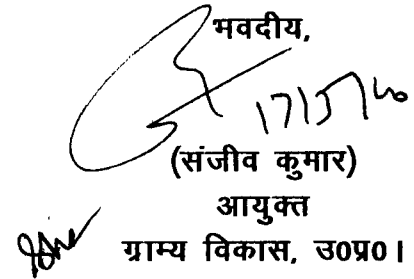 भवदीय,
17/5/10
(संजीव कुमार)
आयुक्त
ग्राम्य विकास, उ0प्र0।